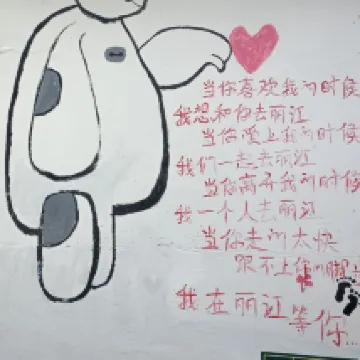 当你喜欢我的时候
我想和你去丽江
当你爱上我的时候
我们一起去丽江
当你离开我的时候
我一个人去丽江
当你走的太快
跟不上你的脚
我在丽江等你...